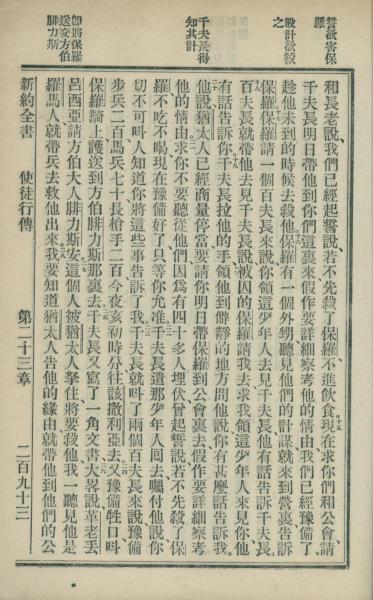 誓欲害保
羅
設計欲殺
之
千夫長得
知其計
卽將保羅
送交方伯
腓力斯
和長老說、我們已經起誓說、若不先殺了保羅、不進飮食、現在求你們和公會、請
千夫長明日帶他到你們這裏來、假作要詳細察考他的情由、我們已經豫備了、
趁他未到的時候去殺他、保羅有一個外甥、聽見他們的計謀、就來到營裏、告訴
保羅、保羅請一個百夫長來、說、你領這少年人去見千夫長、他有話告訴千夫長、
百夫長就帶他去見千夫長、說、被囚的保羅請我去、求我領這少年人來見你、他
有話告訴你、千夫長拉他的手、領他到僻靜的地方、問他說、你有甚麼話告訴我、
他說、猶太人已經商量停當、要請你明日帶保羅到公會裏去、假作要詳細察考
他的情由、求你不要聽從他們、因爲有四十多人埋伏、曾起誓說、若不先殺了保
羅、不吃不喝、現在豫備好了、只等你允准、千夫長遣那少年人囘去、囑付他說、你
切不可呌人知道你將這些事告訴了我、千夫長就呌了兩個百夫長來、說、豫備
步兵二百、馬兵七十、長槍手二百、今夜亥初時分、往該撒利亞去、又豫備牲口、呌
保羅騎上、護送到方伯腓力斯那裏去、千夫長又寫了一角文書、大畧說、革老丟
呂西亞請方伯大人腓力斯安、這個人被猶太人拏住、將要殺他、我一聽見他是
羅馬人、就帶兵去救他出來、我要知道猶太人吿他的緣由、就帶他到他們的公
新約全書 使徒行傳 第二十三章 二百九十三